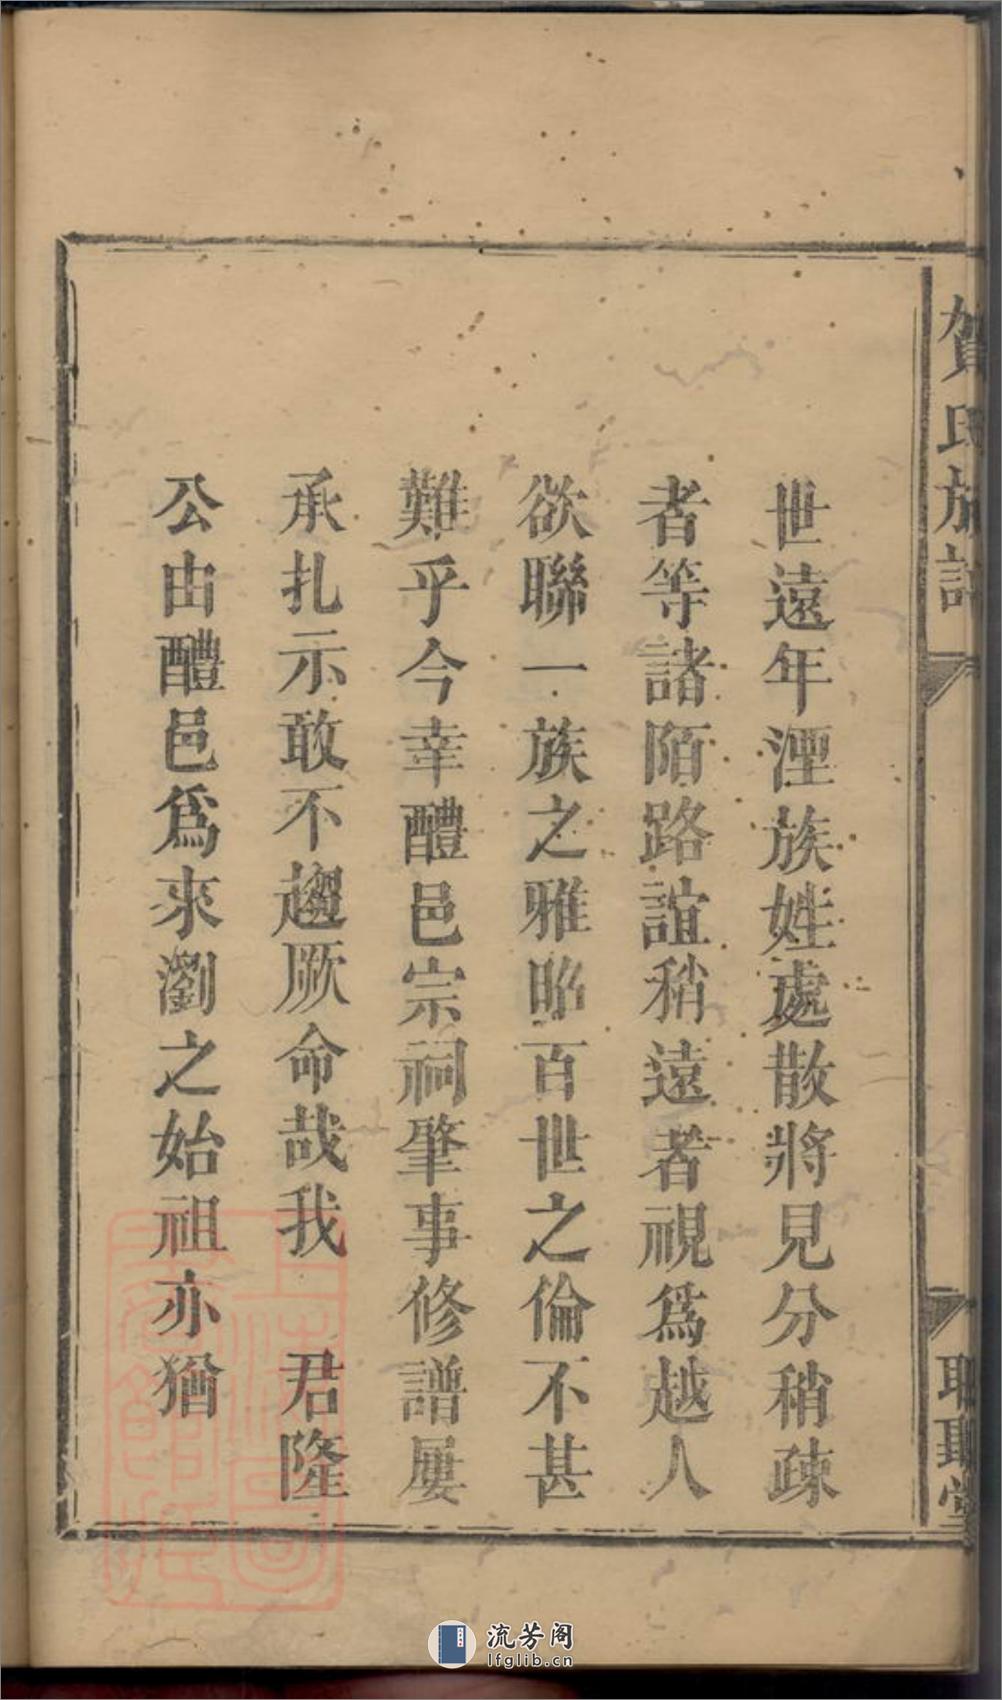 賀氏族譜
世遠年湮族姓處散將見分稍疎
者等諸陌路誼稍遠者視爲越人
欲聯一族之雅昭百世之倫不甚
難乎今幸醴邑宗祠肇事修譜屢
承扎示敢不趨厥命哉我 君隆
公由醴邑爲來瀏之始祖亦猶
流芳阁
lfglib.cn